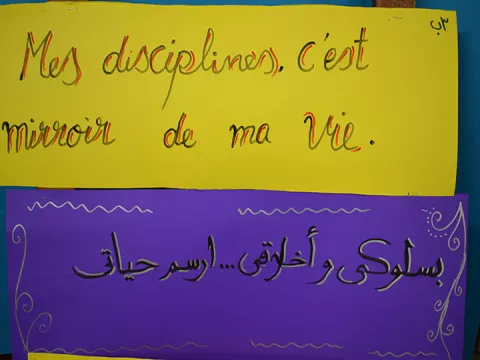 ٣ب
Mes disciplines. c'est
mirroir de ma vie.
بسلوكي وأخلاقي... ارسم حياتي